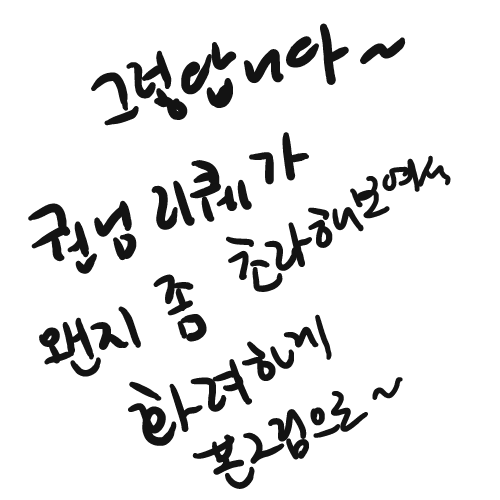 그렇답니다~
권넘 리퀘가
왠지 좀 초라해보여서
화려하게
본그림으로~